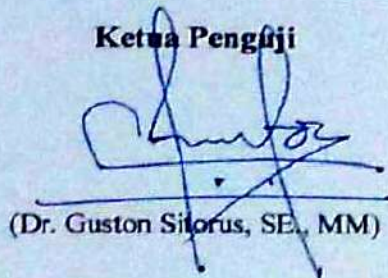 Ketua Penguji
(Dr. Guston Sitorus, SE., MM)